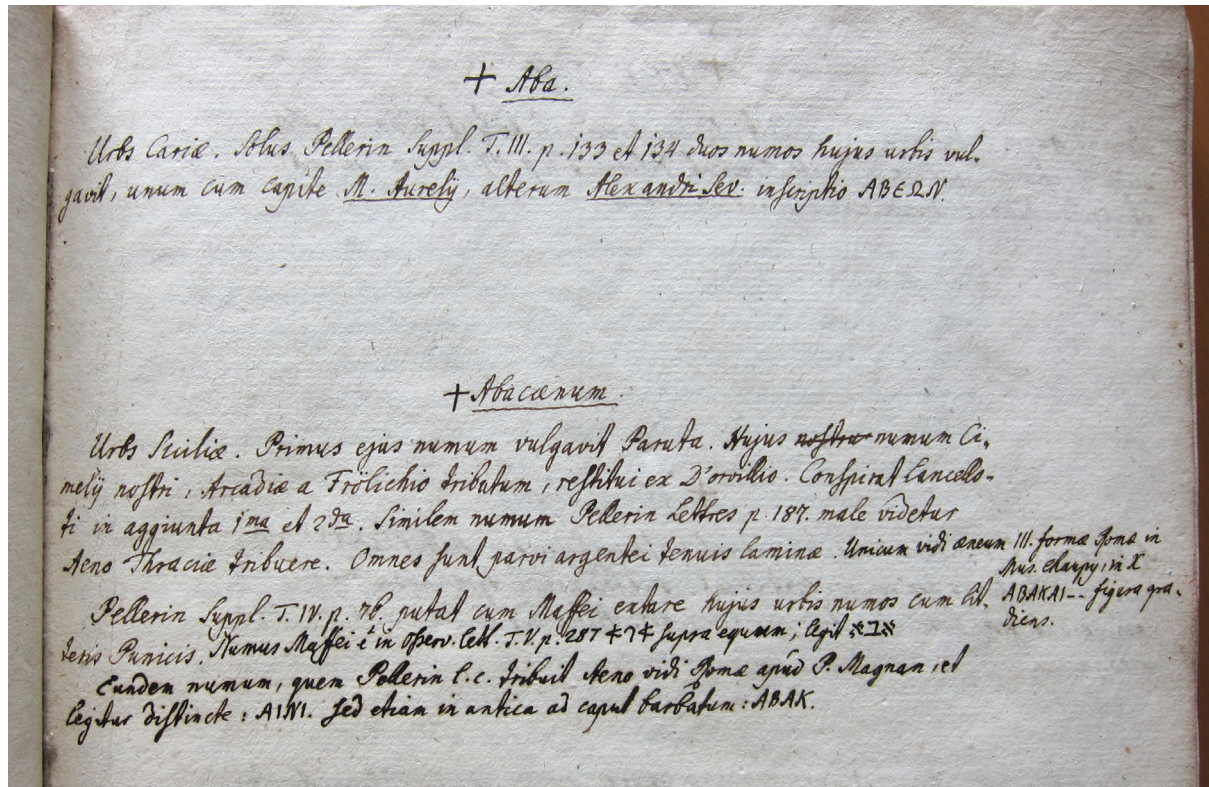 + Aba.
Urbs Cariæ. Solus Pellerin Suppl. T. III. p. 133 et 134 duos numos hujus urbis vul-
gavit, unum cum capite M. Aurelij, alterum Alexandri Sev. inscriptio ΑΒΕΩΝ.
+ Abacænum.
Urbs Siciliæ. Primus ejus numum vulgavit Paruta. Hujus nostru numum Ci-
melij nostri, Arcadiæ a Frölichio tributum, restitui ex D'orvillio. Conspirat Lancello-
ti in aggiunta 1ma et 2da. Similem numum Pellerin Lettres p. 187. male videtur
Aeno Thraciæ tribuere. Omnes sunt parvi argentei tenuis laminæ. Unicum vidi æneum III. formæ Romæ in
Mus. in X
ABAKAI-- figura gra-
diens.
Pellerin Suppl. T. IV. p. 76. putat cum Maffei extare hujus urbis numos cum lit-
teris Punicis. Numus Maffei in Osserv. Lett. T. V. p. 287 supra equum; legit
Eundem numum, quem Pellerin l.c. tribuit Aeno vidi Romæ apud P. Magnan, et
legitur distincte: AINI. sed etiam in antica ad caput barbatum: ABAK.